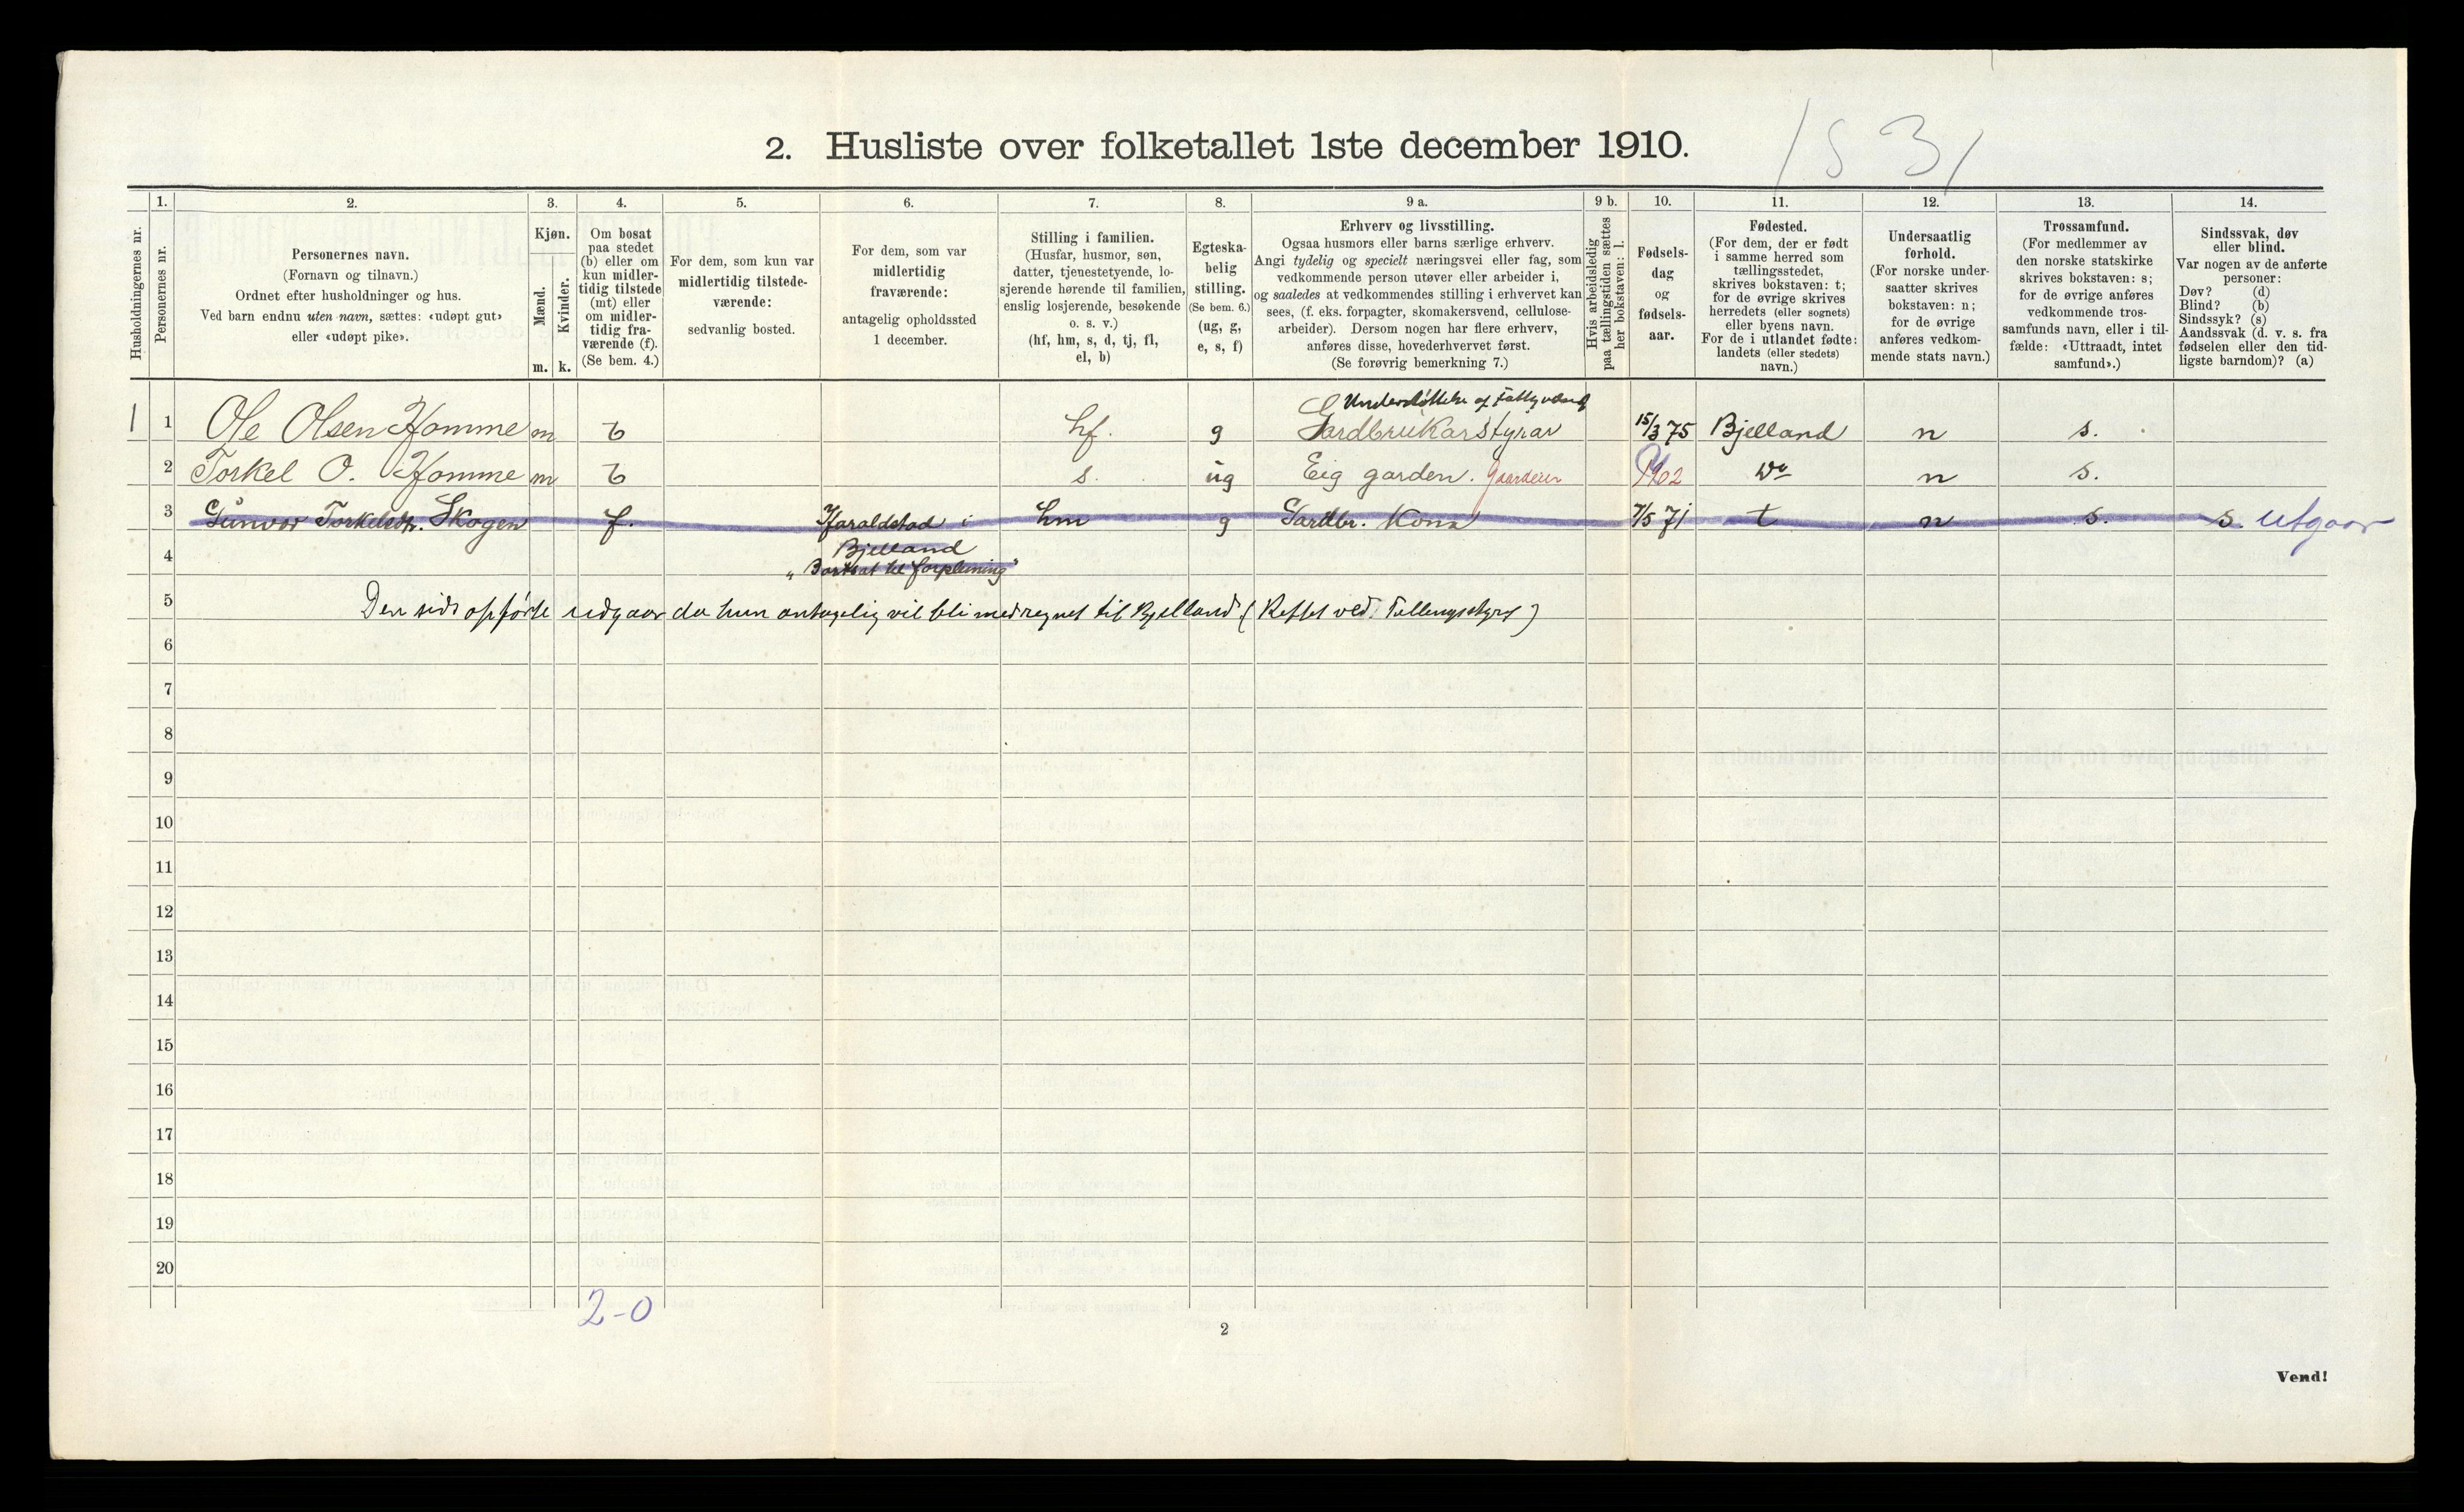 1531
2. Husliste over folketallet 1ste december 1910.
Husholdningernes nr.
1.
Personernes nr.
2.
Personernes navn.
(Fornavn og tilnavn.)
Ordnet efter husholdninger og hus.
Ved barn endnu uten navn, sættes: «udøpt gut»
eller «udøpt pike».
3.
Kjøn.
Mænd.
Kvinder.
m. k.
4.
Om bosat
paa stedet
(b) eller om
kun midler-
tidig tilstede
(mt) eller
om midler-
tidig fra-
værende (f).
(Se bem. 4.)
5.
For dem, som kun var
midlertidig tilstede-
værende:
sedvanlig bosted.
6.
For dem, som var
midlertidig
fraværende:
antagelig opholdssted
1 december.
7.
Stilling i familien.
(Husfar, husmor, søn,
datter, tjenestetyende, lo-
sjerende hørende til familien,
enslig losjerende, besøkende
o. s. v.)
(hf, hm, s, d, tj, fl,
el, b)
8.
Egteska-
belig
stilling.
(Se bem. 6.)
(ug, g,
e, s, f)
9 a.
Erhverv og livsstilling.
Ogsaa husmors eller barns særlige erhverv.
Angi tydelig og specielt næringsvei eller fag, som
vedkommende person utøver eller arbeider i,
og saaledes at vedkommendes stilling i erhvervet kan
sees, (f. eks. forpagter, skomakersvend, cellulose-
arbeider). Dersom nogen har flere erhverv,
anføres disse, hovederhvervet først.
(Se forøvrig bemerkning 7.)
9 b.
Hvis arbeidsledig
paa tællingstiden sættes
her bokstaven: l.
10.
Fødsels-
dag
og
fødsels-
aar.
11.
Fødested.
(For dem, der er født
i samme herred som
tællingsstedet,
skrives bokstaven: t;
for de øvrige skrives
herredets (eller sognets)
eller byens navn.
For de i utlandet fødte:
landets (eller stedets)
navn.)
12.
Undersaatlig
forhold.
(For norske under-
saatter skrives
bokstaven: n;
for de øvrige
anføres vedkom-
mende stats navn.)
13.
Trossamfund.
(For medlemmer av
den norske statskirke
skrives bokstaven: s;
for de øvrige anføres
vedkommende tros-
samfunds navn, eller i til-
fælde: «Uttraadt, intet
samfund».)
14.
Sindssvak, døv
eller blind.
Var nogen av de anførte
personer:
Døv? (d)
Blind? (b)
Sindssyk? (s)
Aandssvak (d. v. s. fra
fødselen eller den tid-
ligste barndom)? (a)
Understøttelse af
1 1 Ole Olsen Homme m b hf. g Gardbrukarstyrar 15/3 75 Bjelland n s.
2 Torkel O. Homme m b s. ug Eig garden. Gaardeier 1902 do n s.
3 Gunvor Torkelsdtr. Skogen f. Haraldstad i hm g Gardbr. Kona 7/5 71 t n s. s. Utgaar
4 Bjelland
"Bortsat til forpleining"
5 Den sidst opførte udgaar da hun antagelig vil bli medregnet til Bjelland (Rettet ved Tellingsstyret)
6
7
8
9
10
11
12
13
14
15
16
17
18
19
20
2-0
2
Vend!